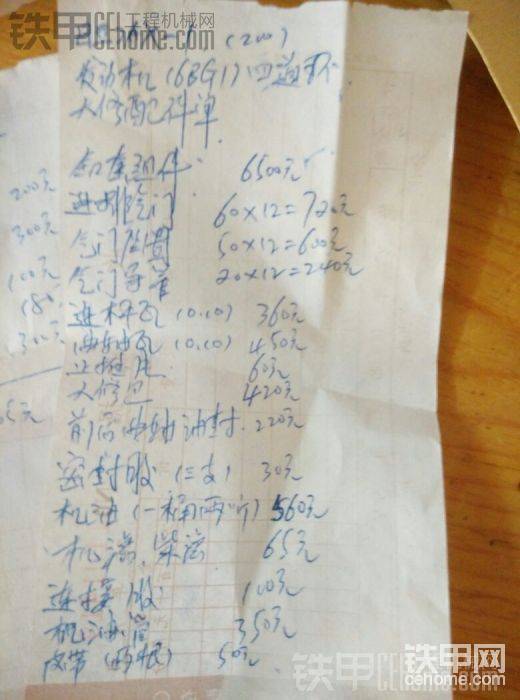 铁甲 工程机械网
(200)
发动机 (6BG1) 四道环
大修配件单
缸套组件 6500元
进排气门 60×12=720元
气门座圈 50×12=600元
气门导管 20×12=240元
连杆瓦 (0.10) 360元
曲轴瓦 (0.10) 450元
止推片 60元
大修包 420元
前后曲轴油封 220元
密封胶 (三支) 30元
机油 (一桶两听) 560元
机滤、柴滤 65元
连接胶 100元
机油管 350元
皮带 (两根) 50元
200元
300元
100元
180
铁甲工程机械网
cehome.com